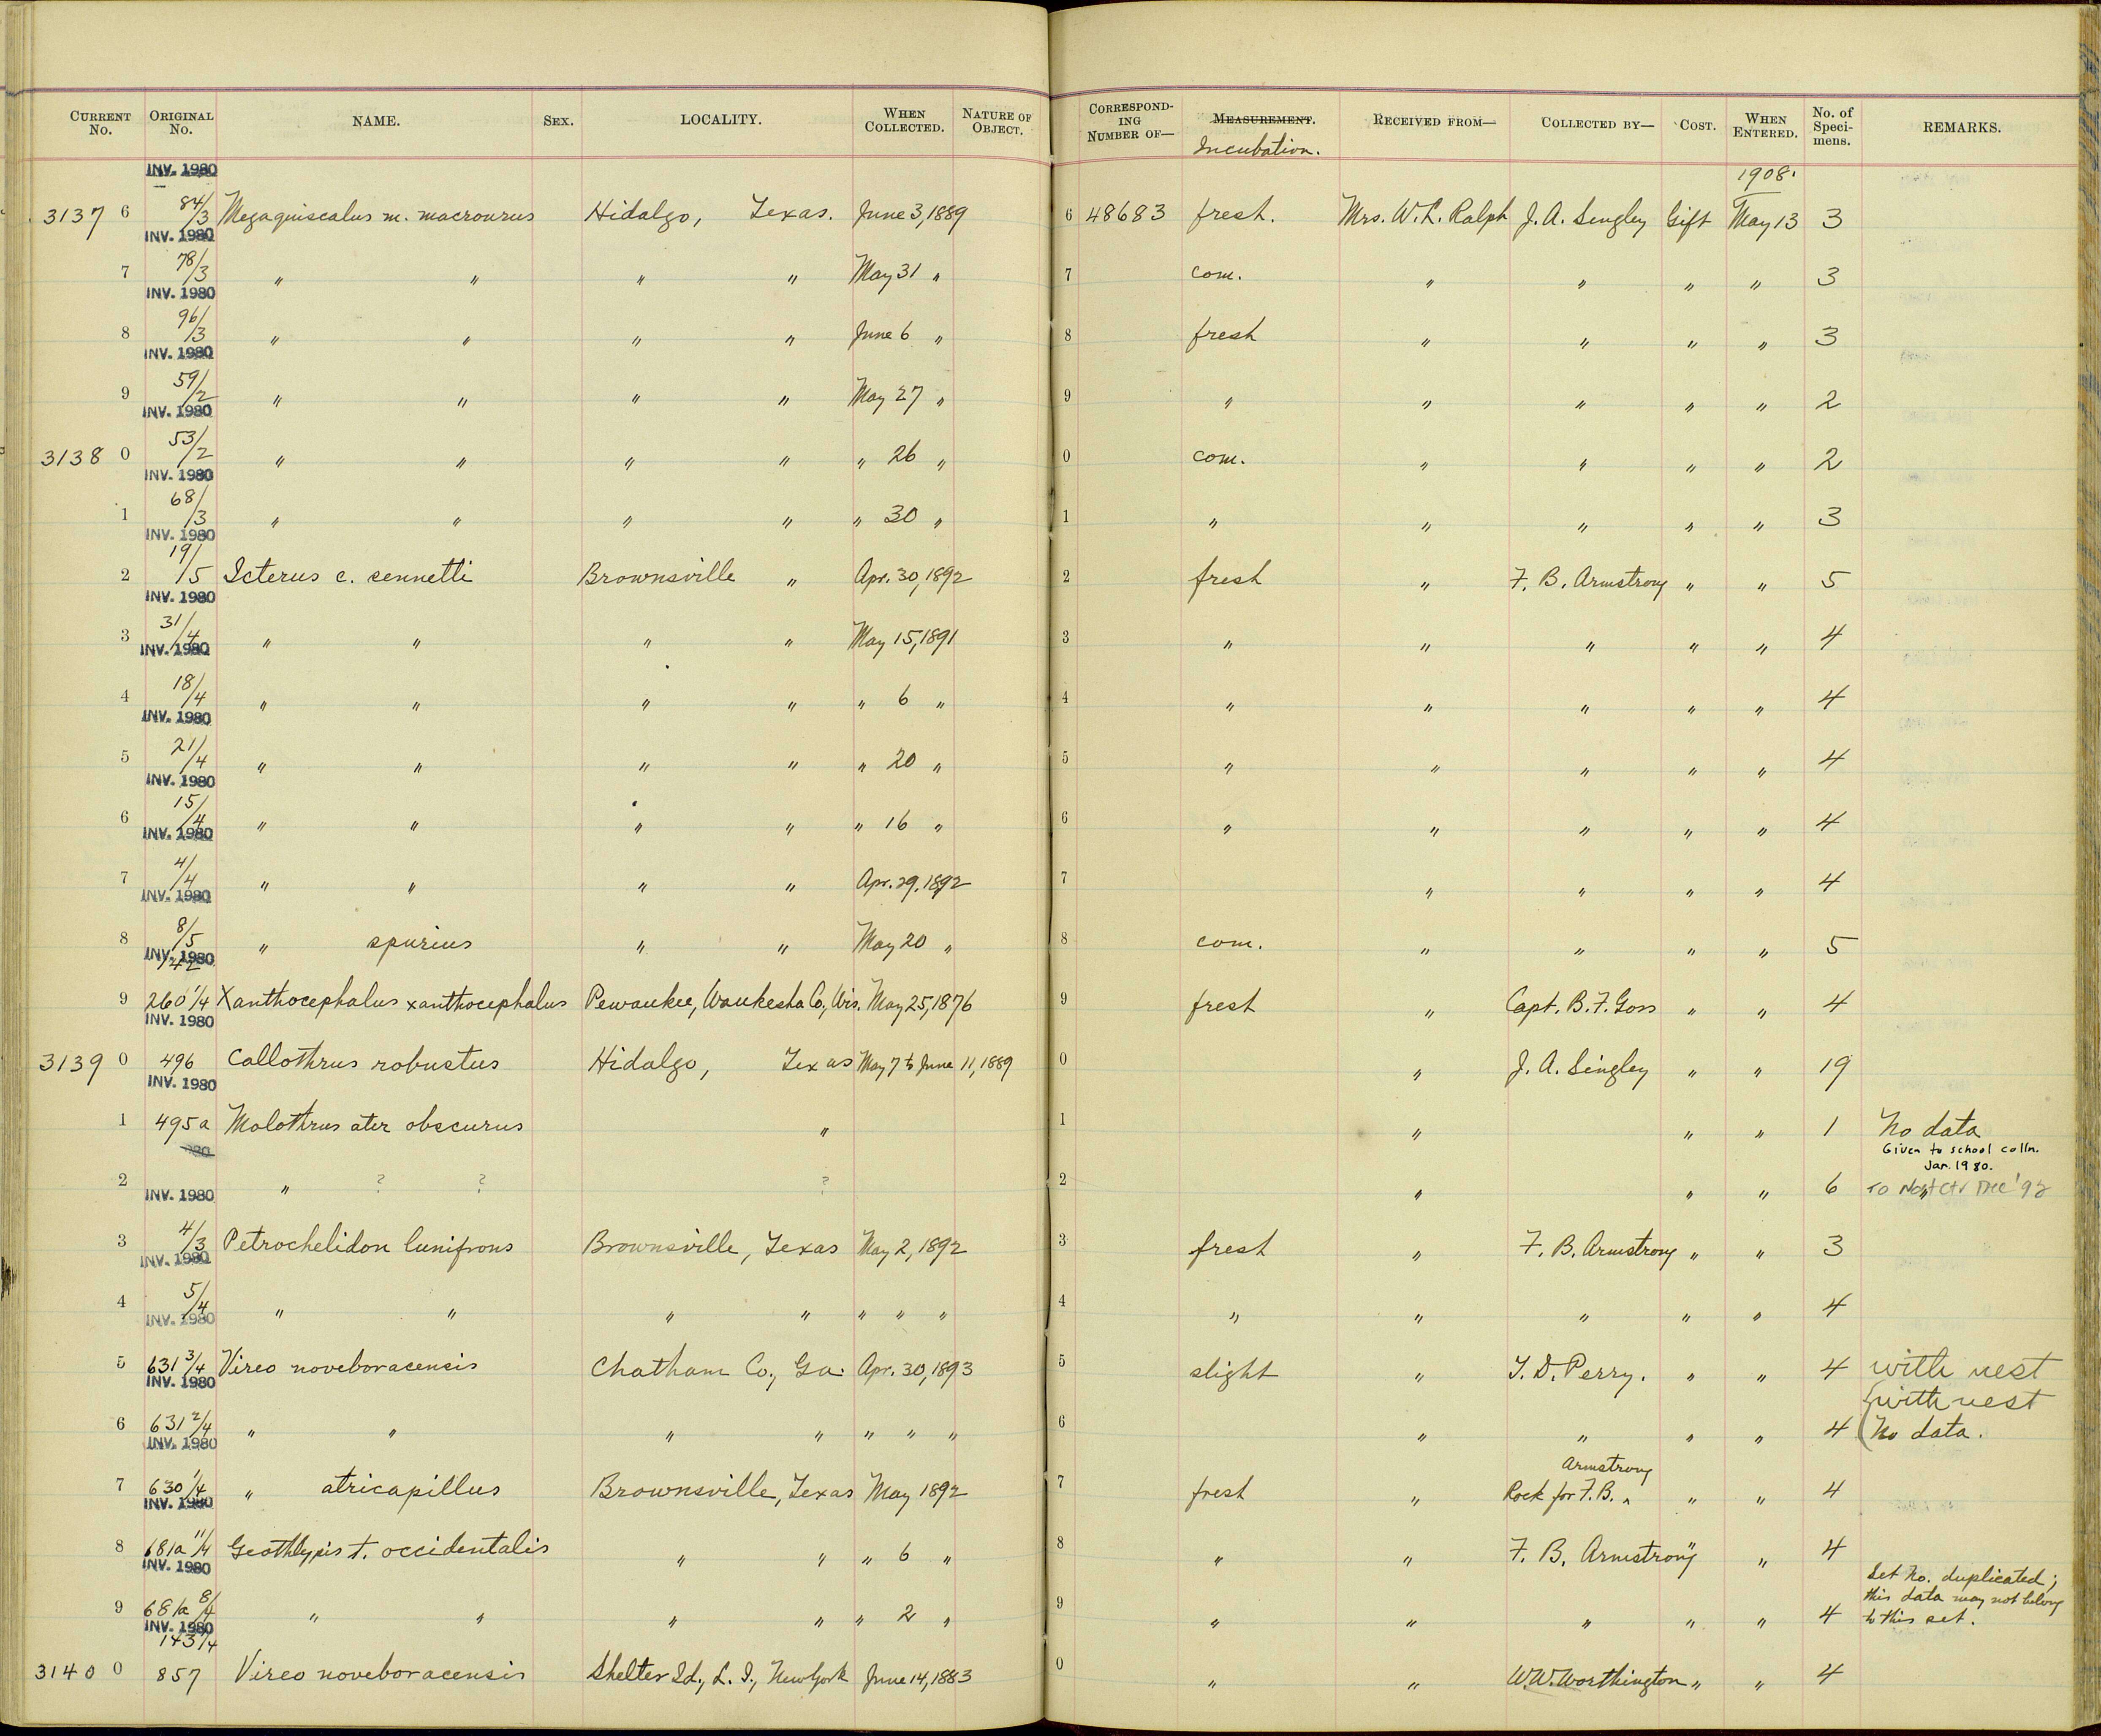 CURRENT No. ORIGINAL No. NAME. SEX. LOCALITY. WHEN COLLECTED. NATURE OF OBJECT. CORRESPONDING NUMBER OF— MEASUREMENT. Incubation. RECEIVED FROM— COLLECTED BY— COST. WHEN ENTERED. No. of Specimens. REMARKS.
INV. 1980 1908.
3137 6 84/3 Megaquiscalus m. macrourus Hidalgo, Texas. June 3, 1889 6 48683 fresh. Mrs. W. L. Ralph J. A. Singley Gift May 13 3
INV. 1980
7 78/3 " " " " May 31 " 7 com. " " " " 3
INV. 1980
8 96/3 " " " " June 6 " 8 fresh " " " " 3
INV. 1980
9 59/2 " " " " May 27 " 9 " " " " " 2
INV. 1980
3138 0 53/2 " " " " " 26 " 0 com. " " " " 2
INV. 1980
1 68/3 " " " " " 30 " 1 " " " " " 3
INV. 1980
2 19/5 Icterus c. sennetti Brownsville " Apr. 30, 1892 2 fresh " F. B. Armstrong " " 5
INV. 1980
3 31/4 " " " " May 15, 1891 3 " " " " " 4
INV. 1980
4 18/4 " " " " " 6 " 4 " " " " " 4
INV. 1980
5 21/4 " " " " " 20 " 5 " " " " " 4
INV. 1980
6 15/4 " " " " " 16 " 6 " " " " " 4
INV. 1980
7 4/4 " " " " Apr. 29, 1892 7 " " " " 4
INV. 1980
8 8/5 " spurius " " May 20 " 8 com. " " " " 5
INV. 1980
9 260 1/4 Xanthocephalus xanthocephalus Pewaukee, Waukesha Co., Wis. May 25, 1876 9 fresh " Capt. B. F. Goss " " 4
INV. 1980
3139 0 496 Callothrus robustus Hidalgo, Texas May 7 to June 11, 1889 0 " J. A. Singley " " 19
INV. 1980
1 495a Molothrus ater obscurus " 1 " " " 1 No data
Given to school colln.
Jan. 1980.
2 " ? ? ? 2 " " " 6 "
INV. 1980
3 4/3 Petrochelidon lunifrons Brownsville, Texas May 2, 1892 3 fresh " F. B. Armstrong " " 3
INV. 1980
4 5/4 " " " " " " " 4 " " " " " 4
INV. 1980
5 631 3/4 Vireo noveboracensis Chatham Co., Ga. Apr. 30, 1893 5 slight " T. D. Perry. " " 4 with nest
INV. 1980
with nest
6 631 2/4 " " " " " " " 6 " " " " 4 No data.
INV. 1980
Armstrong
7 630 1/4 " atricapillus Brownsville, Texas May 1892 7 fresh " Rock for F. B. ^ " " 4
INV. 1980
8 681a 11/4 Geothlypis t. occidentalis " " " 6 " 8 " " F. B. Armstrong " " 4
INV. 1980
Set No. duplicated;
this data may not belong
9 681a 8/4 " " " " " 2 " 9 " " " " " 4 to this set.
INV. 1980
143 1/4
3140 0 857 Vireo noveboracensis Shelter Id., L. I., New York June 14, 1883 0 " " W. W. Worthington " " 4